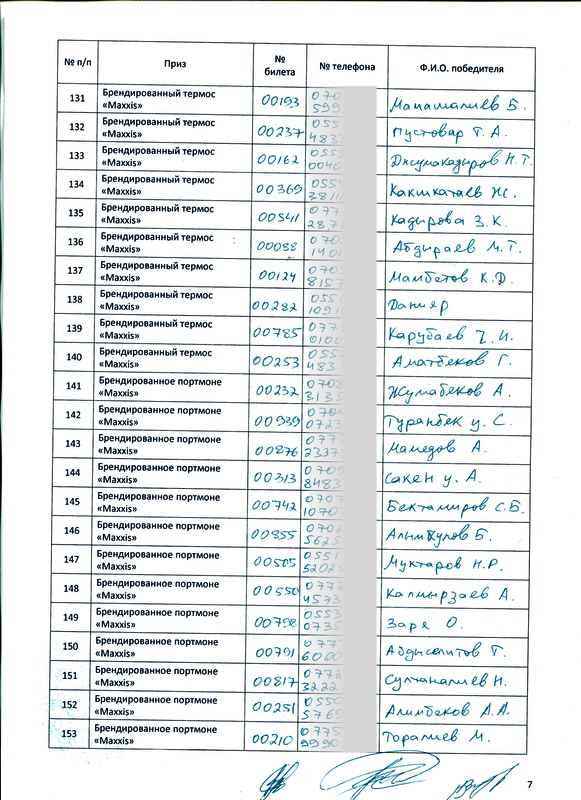 № п/п Приз № билета № телефона Ф.И.О. победителя
131 Брендированный термос «Maxxis» 00193 070 599 Мапашалиев Б.
132 Брендированный термос «Maxxis» 00237 055 483 Пустовар Т. А.
133 Брендированный термос «Maxxis» 00162 055 0040 Джумакадыров Н. Т.
134 Брендированный термос «Maxxis» 00369 0554 3811 Какишкатаев Ж.
135 Брендированный термос «Maxxis» 00541 077 287 Кадырова З. К.
136 Брендированный термос «Maxxis» 00088 070 1401 Абдираев М. Т.
137 Брендированный термос «Maxxis» 00124 070 8157 Мамбетов К. Д.
138 Брендированный термос «Maxxis» 00282 055 1091 Данияр
139 Брендированный термос «Maxxis» 00785 077 0100 Карубаев Ч. И.
140 Брендированный термос «Maxxis» 00253 055 483 Аматбеков Г.
141 Брендированное портмоне «Maxxis» 00232 0708 3135 Жумабеков А.
142 Брендированное портмоне «Maxxis» 00939 070 0723 Туранбек у. С.
143 Брендированное портмоне «Maxxis» 00876 0777 2337 Мамедов А.
144 Брендированное портмоне «Maxxis» 00313 0709 8483 Сакен у. А.
145 Брендированное портмоне «Maxxis» 00742 0707 1070 Бектамиров С. Б.
146 Брендированное портмоне «Maxxis» 00855 0702 5625 Алымкулов Б.
147 Брендированное портмоне «Maxxis» 00505 0551 5202 Муктаров Н. Р.
148 Брендированное портмоне «Maxxis» 00550 0772 4573 Калмырзаев А.
149 Брендированное портмоне «Maxxis» 00798 0553 0735 Заря О.
150 Брендированное портмоне «Maxxis» 00791 077 6000 Абдисалитов Т.
151 Брендированное портмоне «Maxxis» 00817 0772 3222 Султаналиев Н.
152 Брендированное портмоне «Maxxis» 00251 0550 5769 Алимбеков А. А.
153 Брендированное портмоне «Maxxis» 00210 0775 9990 Торалиев М.
7